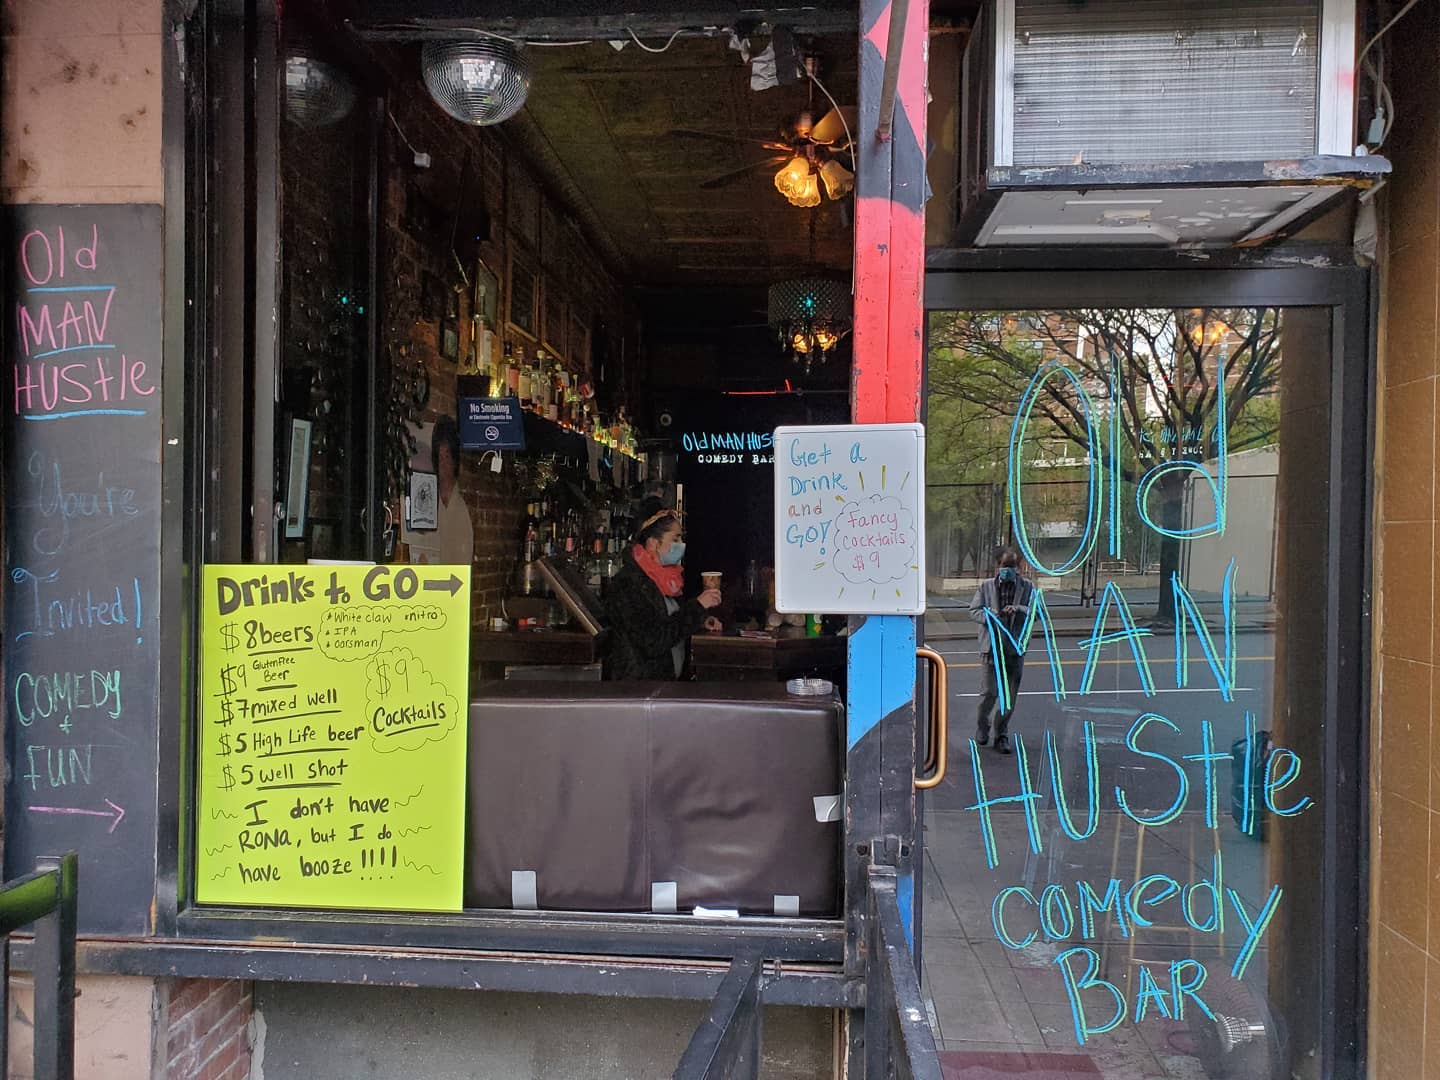 Old
MAN
HUStle
You're
Invited!
COMEDY
+
FUN
Drinks to GO
$8beers
*White claw *nitro
*IPA
*oarsman
$9 Glutenfree
Beer
$9
Cocktails
$7mixed well
$5 High Life beer
$5 well shot
I don't have
RONA, but I do
have booze!!!!
No Smoking
or Electronic Cigarette Use
Old MAN HUST
COMEDY BAR
Get a
Drink
and
GO!
Fancy
Cocktails
$9
Old
MAN
HUStle
comedy
BAR